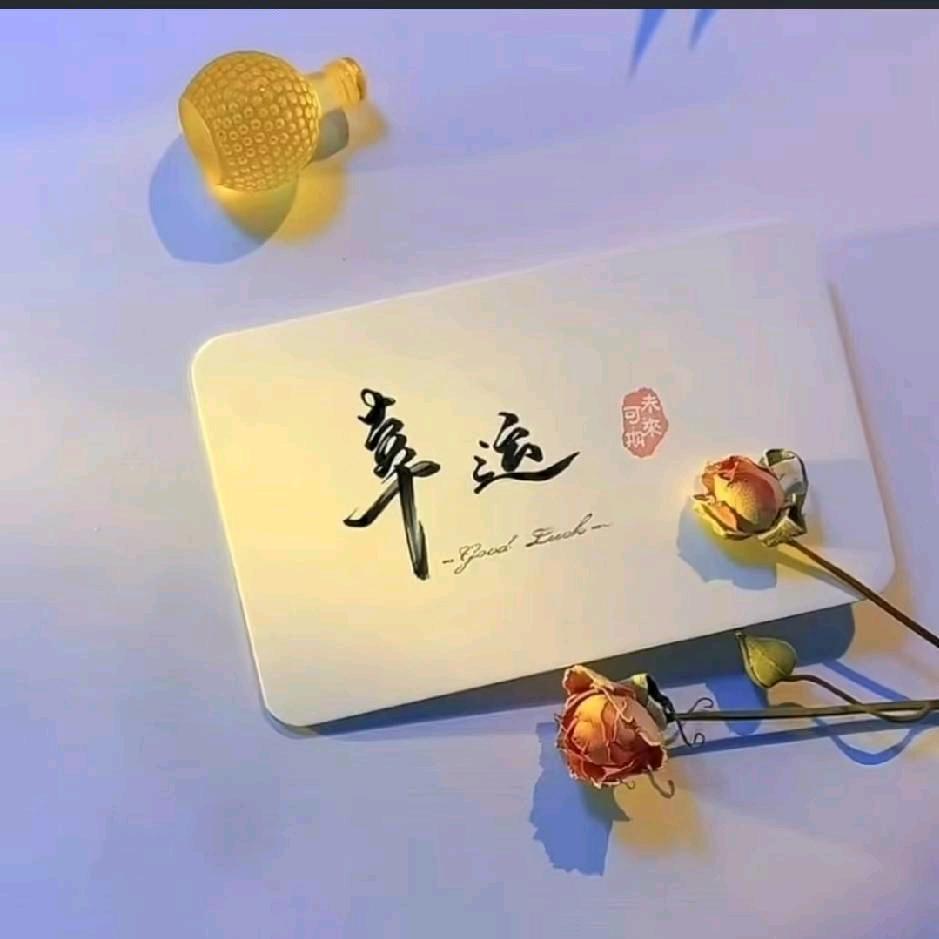 幸运
未來
可期
-Good Luck-